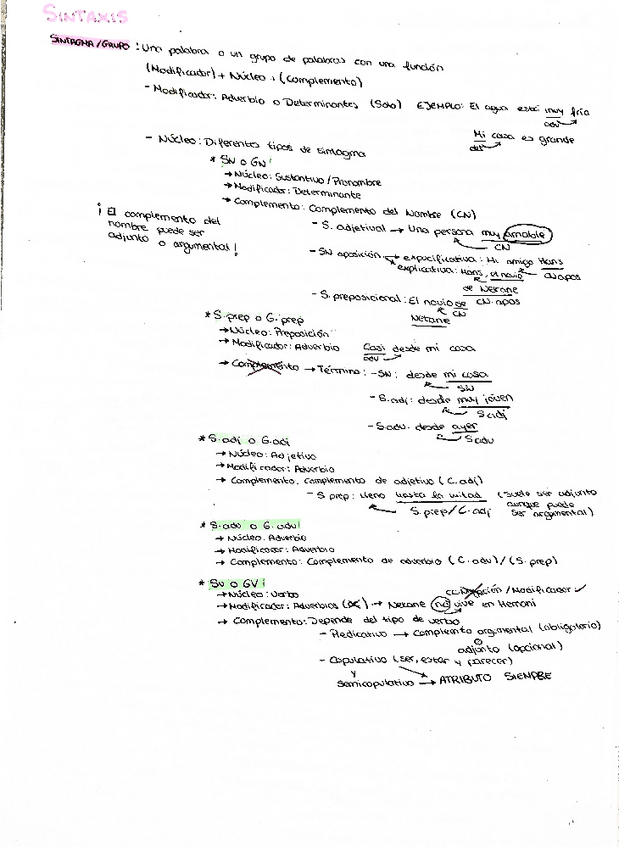 SINTAXIS
SINTAGMA/GRUPO: Una palabra o un grupo de palabras con una función
(Modificador) + Núcleo + (Complemento)
- Modificador: Adverbio o Determinantes (Solo) EJEMPLO: El agua está muy fría
adv
Mi casa es grande
det
- Núcleo: Diferentes tipos de sintagma
* SN o GN:
→ Núcleo: Sustantivo / Pronombre
→ Modificador: Determinante
→ Complemento: Complemento del Nombre (CN)
¡El complemento del
nombre puede ser
adjunto o argumental!
- S. adjetival → Una persona muy amable
CN
- SN aposición → especificativa: Mi amigo Hans
CN apos
explicativa: Hans, el novio
de Nerane
CN. apos
- S. preposicional: El novio de
Nerane
CN
* S. prep o G. prep
→ Núcleo: Preposición
→ Modificador: Adverbio Casi desde mi casa
adv
→ Complemento → Término: - SN: desde mi casa
SN
- S. adj: desde muy joven
S adj
- S adv. desde ayer
S adv
* S. adj o G. adj
→ Núcleo: Adjetivo
→ Modificador: Adverbio
→ Complemento. complemento de adjetivo (C. adj)
- S prep: lleno hasta la mitad (suele ser adjunto
aunque puede
ser argumental)
S. prep / C. adj
* S. adv o G. adv:
→ Núcleo. Adverbio
→ Modificador: Adverbio
→ Complemento: Complemento de adverbio (C. adv) / (S. prep)
* SV o GV:
→ Núcleo: Verbo
→ Modificador: Adverbios → Nerane no vive en Hernani
/ Modificador ✓
→ Complemento: Depende del tipo de verbo
- Predicativo → complemento argumental (obligatorio)
o
adjunto (opcional)
- Copulativo (ser, estar y parecer)
y
semicopulativo → ATRIBUTO SIEMPRE